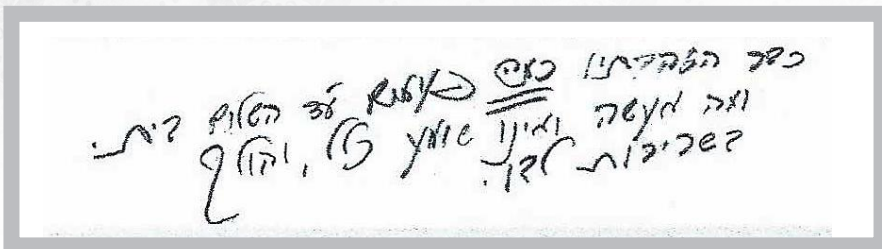 כבר הזהרתיו כמה פעמים על השלום בית.
ומה אעשה ואינו שומע לי, והולך
בשרירות לבו.